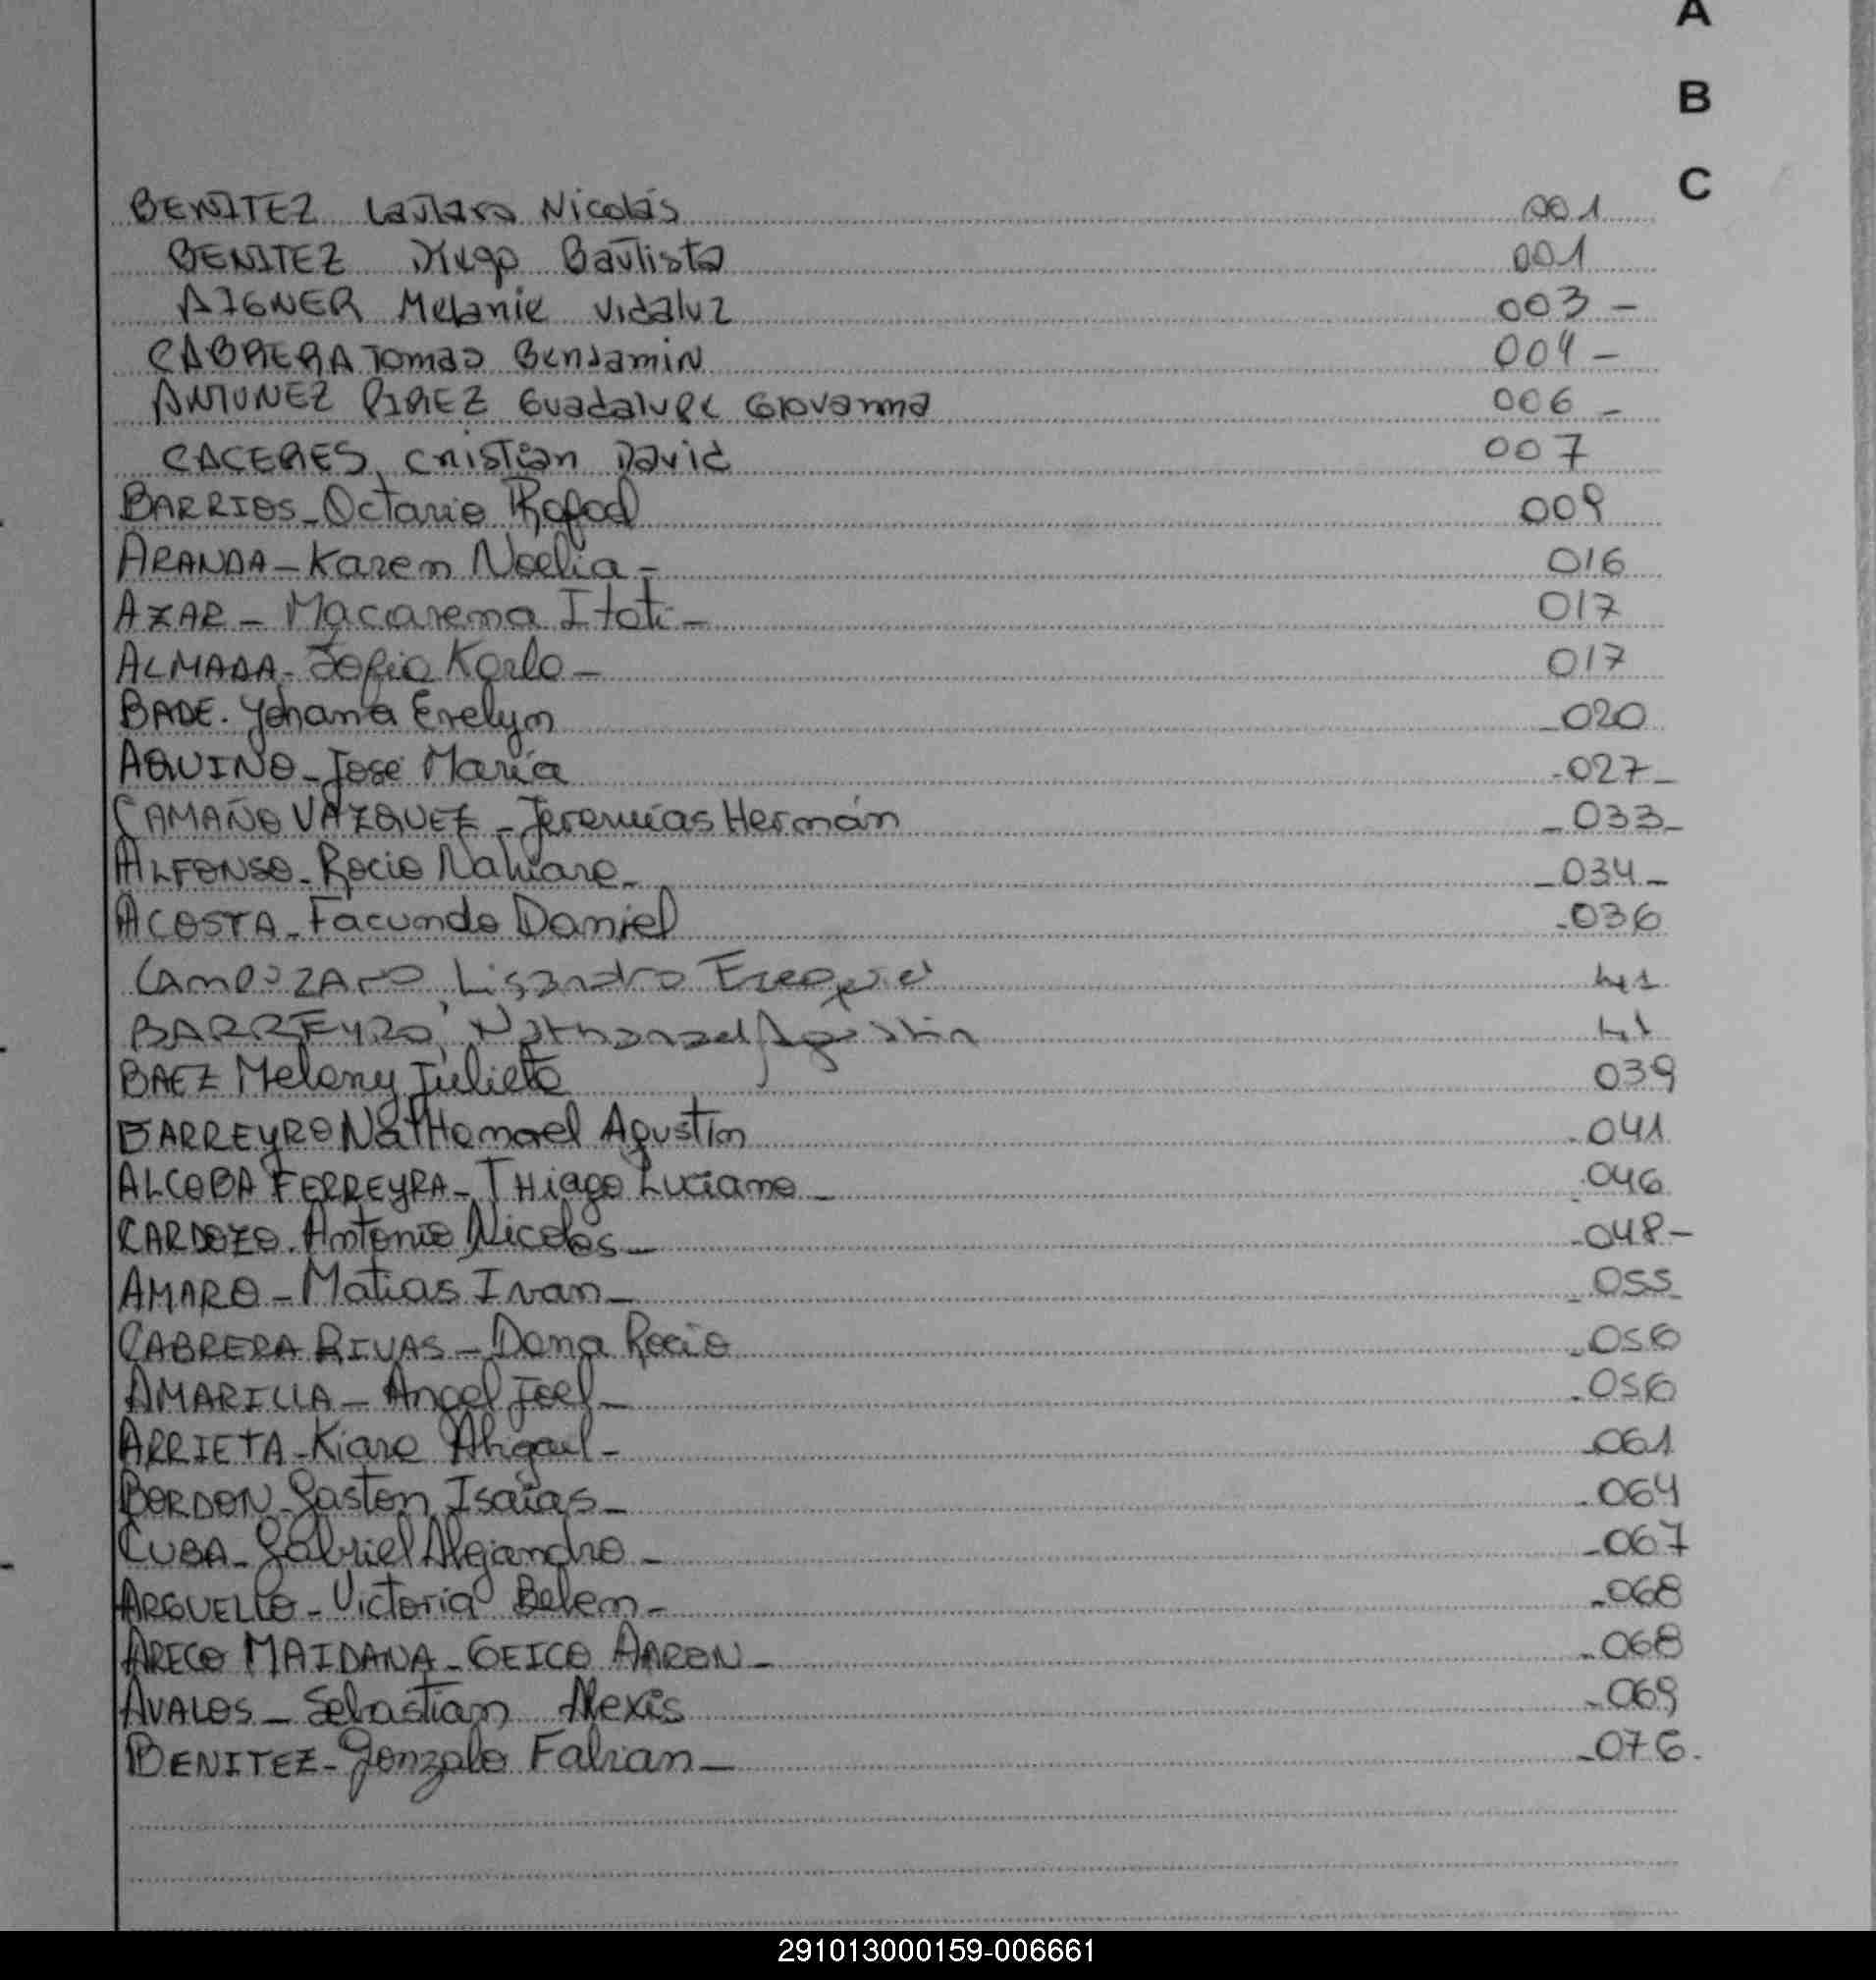 A
B
C
BENITEZ Lautaro Nicolás 001
BENITEZ Diego Bautista 001
AIGNER Melanie Vidaluz 003 -
CABRERA Tomas Benjamin 004 -
ANTUNEZ PIREZ Guadalupe Giovanna 006 -
CACERES, Cristian David 007
BARRIOS - Octavio Rafael 009
ARANDA - Karen Noelia - 016
AZAR - Macarena Itati - 017
ALMADA - Sofia Karla - 017
BADE. Yohana Evelyn - 020
AQUINO - José María - 027 -
CAMAÑO VAZQUEZ - Jeremías Hernán - 033 -
ALFONSO - Rocio Nahiara - - 034 -
ACOSTA - Facundo Daniel - 036
Lisandro Ezequiel 41
BARREYRO, Nathanael Agustin 41
BAEZ Melany Julieta 039
BARREYRO NatHanael Agustin - 041
ALCOBA FERREYRA - THiago Luciano - - 046
CARDOZO. Antonio Nicolas - - 048 -
AMARO - Matias Ivan - - 055 -
CABRERA RIVAS - Dana Rocio - 056
AMARILLA - Angel Joel - - 056
ARRIETA - Kiara Abigail - - 061
BORDON - Gaston Isaías - - 064
CUBA - Gabriel Alejandro - - 067
ARGUELLO - Victoria Belem - - 068
ARECO MAIDANA - GEICO AARON - - 068
AVALOS - Sebastian Alexis - 069
BENITEZ - Gonzalo Fabian - - 076.
291013000159-006661